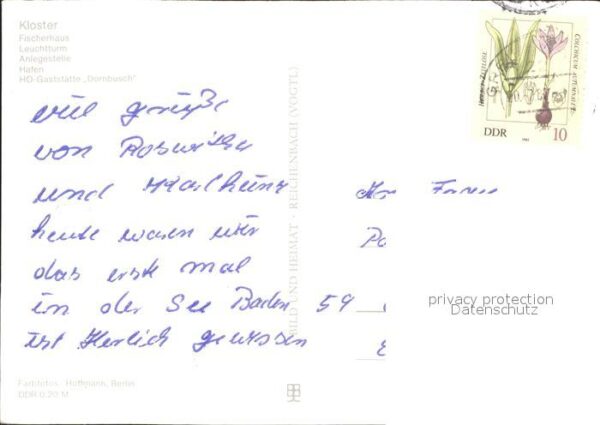 Kloster
Fischerhaus
Leuchtturm
Anlegestelle
Hafen
HO-Gaststätte „Dornbusch"
viel grüße
von Roswitha
und Karlheinz
heute waren wir
das erste mal
in der See Baden
ist Herlich gewessen
Farbfotos: Hoffmann, Berlin
DDR 0,20 M
BILD UND HEIMAT · REICHENBACH (VOGTL)
Herbst-Zeitlose
COLCHICUM AUTUMNALE L.
DDR 10
1982
59
privacy protection
Datenschutz